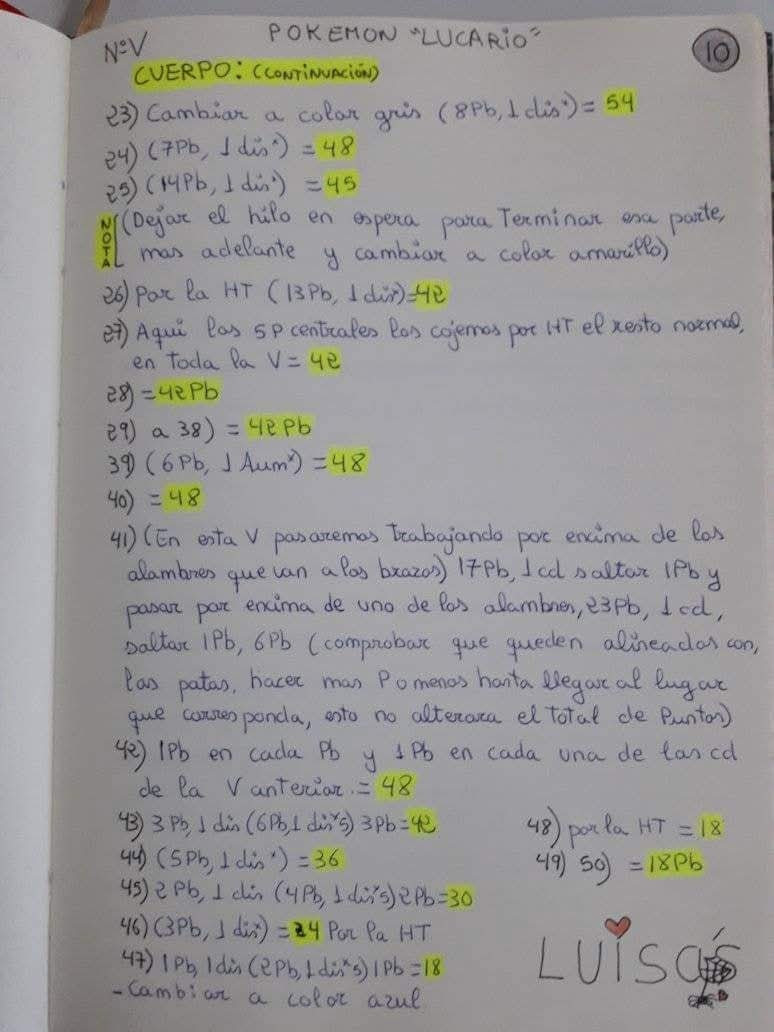 NºV
POKEMON "LUCARIO"
10
CUERPO: (CONTINUACIÓN)
23) Cambiar a color gris (8Pb, 1 dis*) = 54
24) (7Pb, 1 dis*) = 48
25) (14Pb, 1 dis*) = 45
NOTA
(Dejar el hilo en espera para Terminar esa parte,
mas adelante y cambiar a color amarillo)
26) Por la HT (13Pb, 1 dis*) = 42
27) Aqui los 5P centrales los cojemos por HT el resto normal,
en toda la V = 42
28) = 42Pb
29) a 38) = 42Pb
39) (6Pb, 1 Aum*) = 48
40) = 48
41) (En esta V pasaremos trabajando por encima de los
alambres que van a los brazos) 17Pb, 1cd saltar 1Pb y
pasar por encima de uno de los alambres, 23Pb, 1cd,
saltar 1Pb, 6Pb (comprobar que queden alineados con,
las patas, hacer mas P o menos hasta llegar al lugar
que corresponda, esto no alterara el total de Puntos)
42) 1Pb en cada Pb y 1Pb en cada una de las cd
de la V anterior. = 48
43) 3Pb, 1 dis (6Pb, 1 dis*5) 3Pb = 42
44) (5Pb, 1 dis*) = 36
45) 2Pb, 1 dis (4Pb, 1 dis*5) 2Pb = 30
46) (3Pb, 1 dis*) = 24 Por la HT
47) 1Pb, 1dis (2Pb, 1 dis*5) 1Pb = 18
- Cambiar a color azul
48) por la HT = 18
49) 50) = 18Pb
LUISA'S